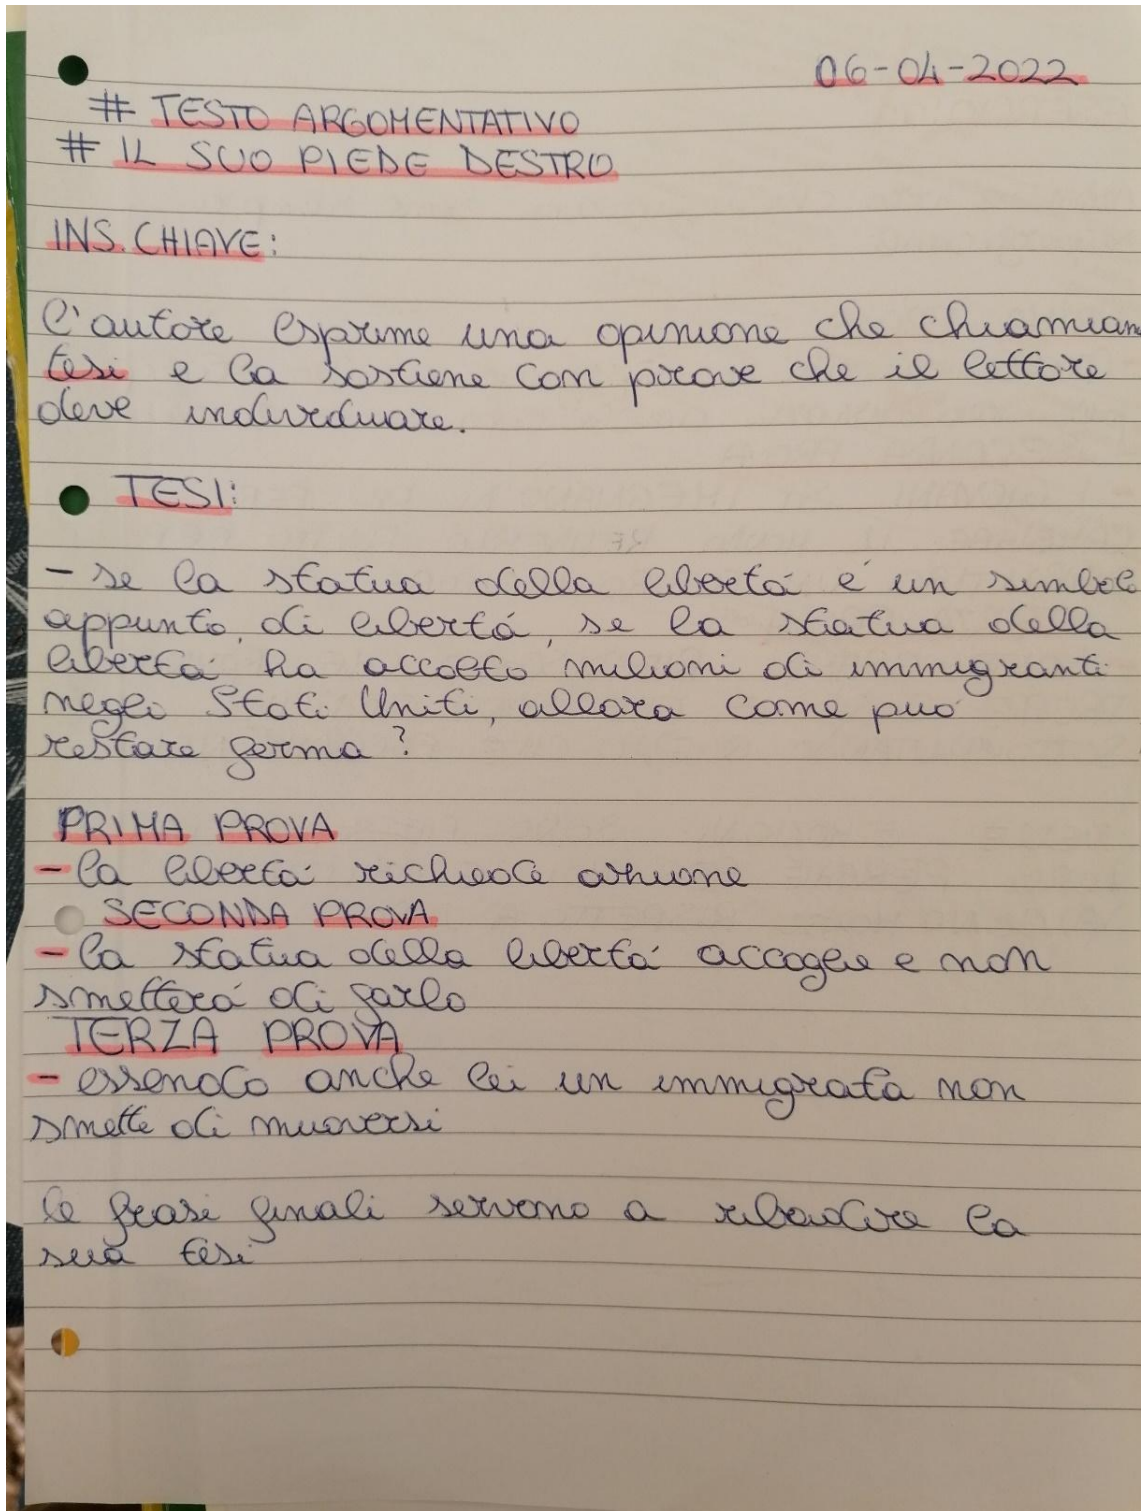 06-04-2022
# TESTO ARGOMENTATIVO
# IL SUO PIEDE DESTRO
INS. CHIAVE:
l'autore esprime una opinione che chiamiam
tesi e la sostiene con prove che il lettore
deve individuare.
TESI:
- se la statua della libertá é un simbolo
appunto, di libertá, se la statua della
libertá ha accolto milioni di immigranti
negli Stati Uniti, allora come può
restare ferma?
PRIMA PROVA
- la libertá richiede
SECONDA PROVA
- la statua della libertá accoglie e non
smetterá di farlo
TERZA PROVA
- essendo anche lei un immigrata non
smette di muoversi
le frasi finali servono a ribadire la
sua tesi